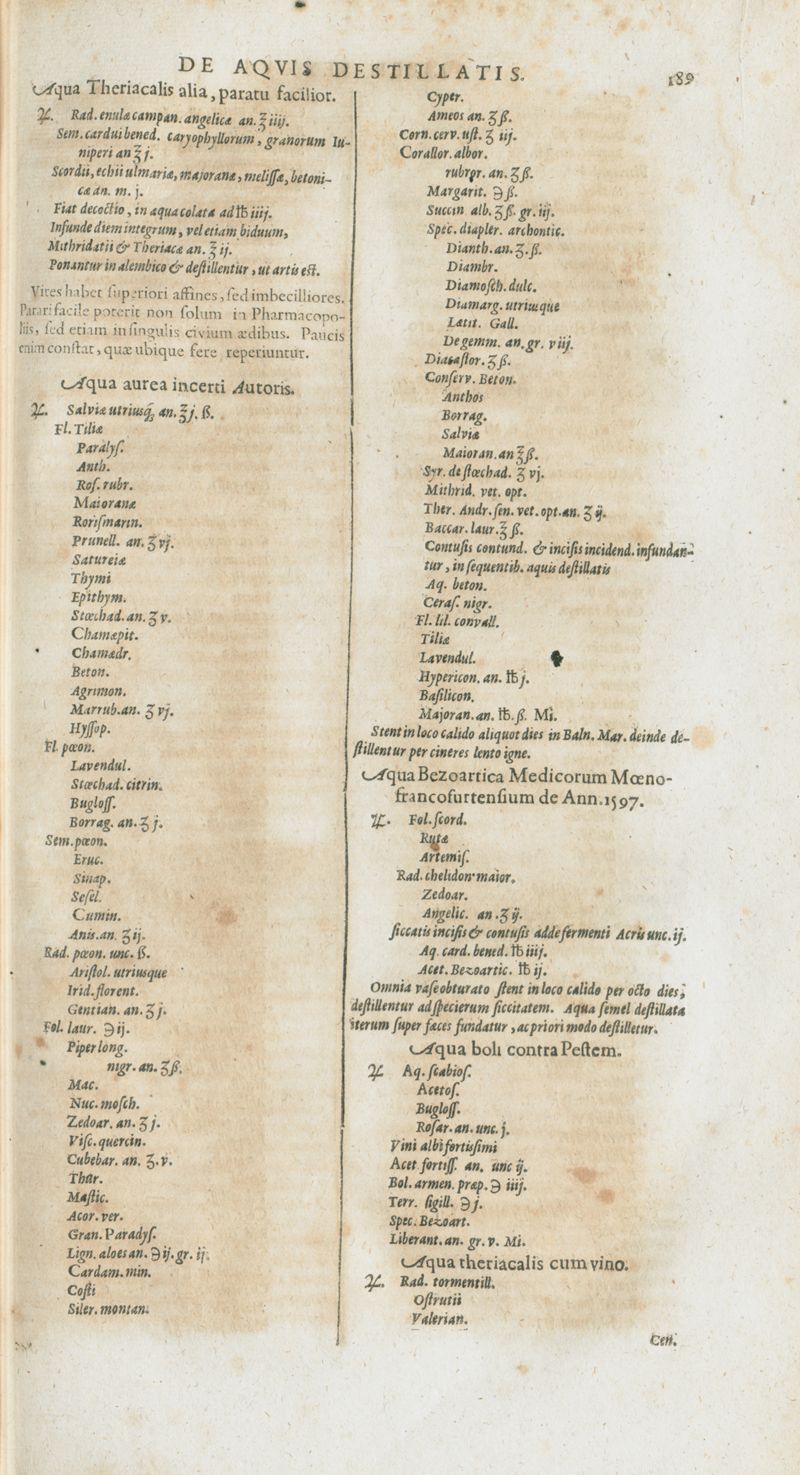 DE AQVIS DESTILLATIS.
189
Aqua Theriacalis alia, paratu facilior.
♃. Rad. enulæ campan. angelicæ an. ℥ iiij.
Sem. cardui bened. caryophyllorum, granorum Iu-
niperi an ℥ j.
Scordii, echii ulmariæ, majoranæ, melissæ, betoni-
cæ an. m. j.
Fiat decoctio, in aqua colata ad ℔ iiij.
Infunde diem integrum, vel etiam biduum,
Mithridatii & Theriacæ an. ℥ ij.
Ponantur in alembico & destillentur, ut artis est.
Vires habet superiori affines, sed imbecilliores.
Parari facile poterit non solum in Pharmacopo-
liis, sed etiam in singulis civium ædibus. Paucis
enim constat, quæ ubique fere reperiuntur.
Aqua aurea incerti Autoris.
♃. Salviæ utriusq́; an. ℥ j. ß.
Fl. Tiliæ
Paralyſ.
Anth.
Roſ. rubr.
Maioranæ
Roriſmarin.
Prunell. an. ʒ vj.
Satureiæ
Thymi
Epithym.
Stœchad. an. ʒ v.
Chamæpit.
Chamædr.
Beton.
Agrimon.
Marrub. an. ʒ vj.
Hyſſop.
Fl. pæon.
Lavendul.
Stœchad. citrin.
Bugloſſ.
Borrag. an. ʒ j.
Sem. pæon.
Eruc.
Sinap.
Seſel.
Cumin.
Anis. an. ʒ ij.
Rad. pæon. unc. ß.
Ariſtol. utriusque
Irid. florent.
Gentian. an. ʒ j.
Fol. laur. ℈ ij.
Piper long.
nigr. an. ʒ ß.
Mac.
Nuc. moſch.
Zedoar. an. ʒ j.
Viſc. quercin.
Cubebar. an. ʒ. v.
Thur.
Maſtic.
Acor. ver.
Gran. Paradyſ.
Lign. aloes an. ℈ ij. gr. ij.
Cardam. min.
Coſti
Siler. montan.
Cyper.
Ameos an. ʒ ß.
Corn. cerv. uſt. ʒ iij.
Corallor. albor.
rubror. an. ʒ ß.
Margarit. ℈ ß.
Succin alb. ʒ ß. gr. iij.
Spec. diapler. archontic.
Dianth. an. ʒ. ß.
Diambr.
Diamoſch. dulc.
Diamarg. utriusque
Lætit. Gall.
De gemm. an. gr. viij.
Diasaſlor. ʒ ß.
Conſerv. Beton.
Anthos
Borrag.
Salviæ
Maioran. an ℥ ß.
Syr. de ſtœchad. ʒ vj.
Mithrid. vet. opt.
Ther. Andr. ſen. vet. opt. an. ʒ ij.
Baccar. laur. ℥ ß.
Contuſis contund. & inciſis incidend. infundan-
tur, in ſequentib. aquis deſtillatis
Aq. beton.
Ceraſ. nigr.
Fl. lil. convall.
Tiliæ
Lavendul.
Hypericon. an. ℔ j.
Baſilicon.
Majoran. an. ℔. ß. Mi.
Stent in loco calido aliquot dies in Baln. Mar. deinde de-
ſtillentur per cineres lento igne.
Aqua Bezoartica Medicorum Mœno-
francofurtenſium de Ann. 1597.
♃. Fol. ſcord.
Rutæ
Artemiſ.
Rad. chelidon. maior.
Zedoar.
Angelic. an. ʒ ij.
ſiccatis inciſis & contuſis adde fermenti Acris unc. ij.
Aq. card. bened. ℔ iiij.
Acet. Bezoartic. ℔ ij.
Omnia vaſe obturato ſtent in loco calido per octo dies,
deſtillentur ad ſpecierum ſiccitatem. Aqua ſemel deſtillata
iterum ſuper fæces fundatur, ac priori modo deſtilletur.
Aqua boli contra Peſtem.
♃ Aq. ſcabioſ.
Acetoſ.
Bugloſſ.
Roſar. an. unc. j.
Vini albi fortiſſimi
Acet fortiſſ. an. unc ij.
Bol. armen. præp. ℈ iiij.
Terr. ſigill. ℈ j.
Spec. Bezoart.
Liberant. an. gr. v. Mi.
Aqua theriacalis cum vino.
♃. Rad. tormentill.
Oſtrutii
Valerian.
Cen.